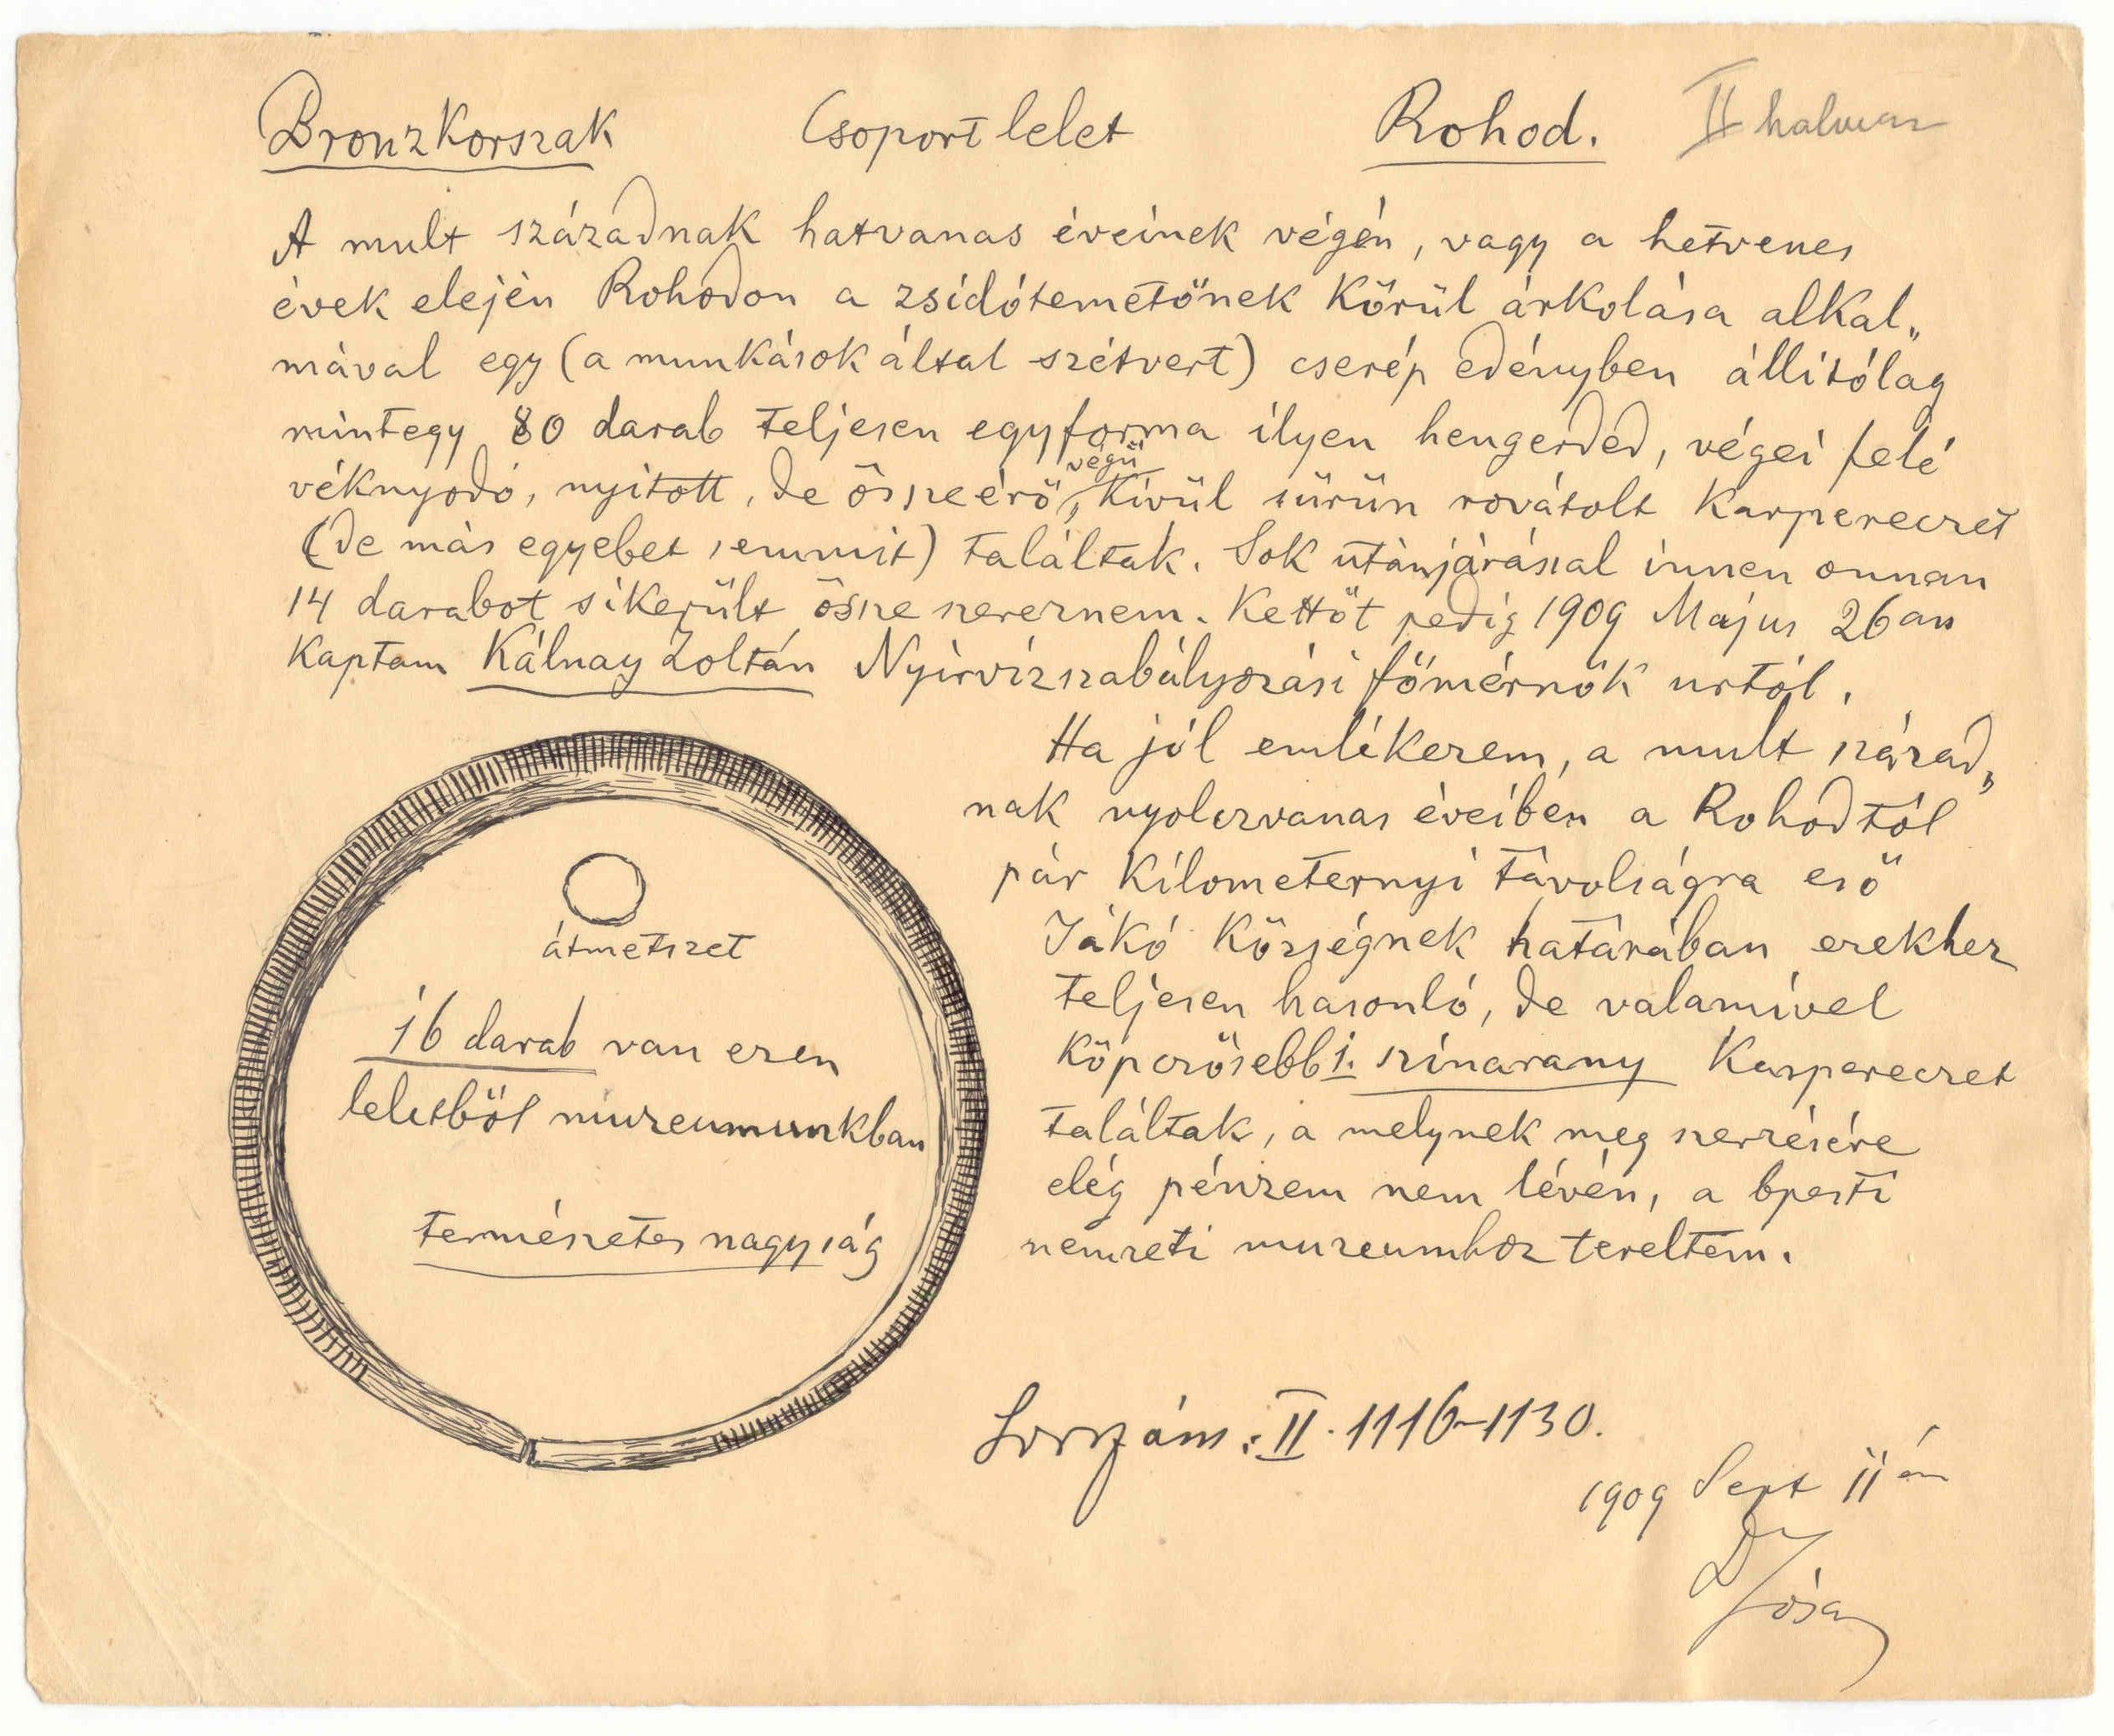 Bronzkorszak Csoport lelet Rohod. II halmaz
A mult századnak hatvanas éveinek végén, vagy a hetvenes
évek elején Rohodon a zsidótemetőnek körül árkolása alkal„
mával egy (a munkások által szétvert) cserép edényben állitólag
mintegy 80 darab teljesen egyforma ilyen hengerded, végei felé
véknyodó, nyitott, de összeérő végü, kivül sürün rovátolt karpereczet
(de más egyebet semmit) találtak. Sok utánjárással innen onnan
14 darabot sikerült össze szereznem. Kettőt pedig 1909 Május 26an
kaptam Kálnay Zoltán Nyirvizszabályozási főmérnök urtól.
Ha jól emlékezem, a mult század„
nak nyolczvanas éveiben a Rohodtól
pár kilometernyi távolságra eső
Jákó községnek határában ezekhez
teljesen hasonló, de valamivel
köpczösebb 1. szinarany karpereczet
találtak, a melynek meg szerzésére
elég pénzem nem lévén, a bpesti
nemzeti muzeumhoz tereltem.
átmetszet
16 darab van ezen
leletből muzeumunkban
természetes nagyság
Sorszám: II. 1116–1130.
1909 Sept 11én
Dr Jósa